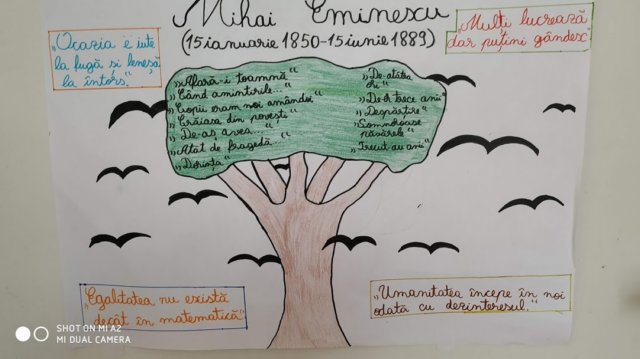 Mihai Eminescu
(15 ianuarie 1850-15 iunie 1889)
„Ocazia e iute
la fugă si leneșă
la întors."
„Mulți lucrează
dar puțini gândesc"
„Afară-i toamnă"
„Când amintirile..."
„Copii eram noi amândoi"
„Crăiasa din povești"
„De-aș avea..."
„Atât de fragedă"
„Dorința"
„De-atâtea
ori"
„De-or trece anii"
„Despărțire"
„Somnoroase
păsărele"
„Trecut-au anii"
„Egalitatea nu există
decât în matematică"
„Umanitatea începe în noi
odată cu dezinteresul."
SHOT ON MI A2
MI DUAL CAMERA